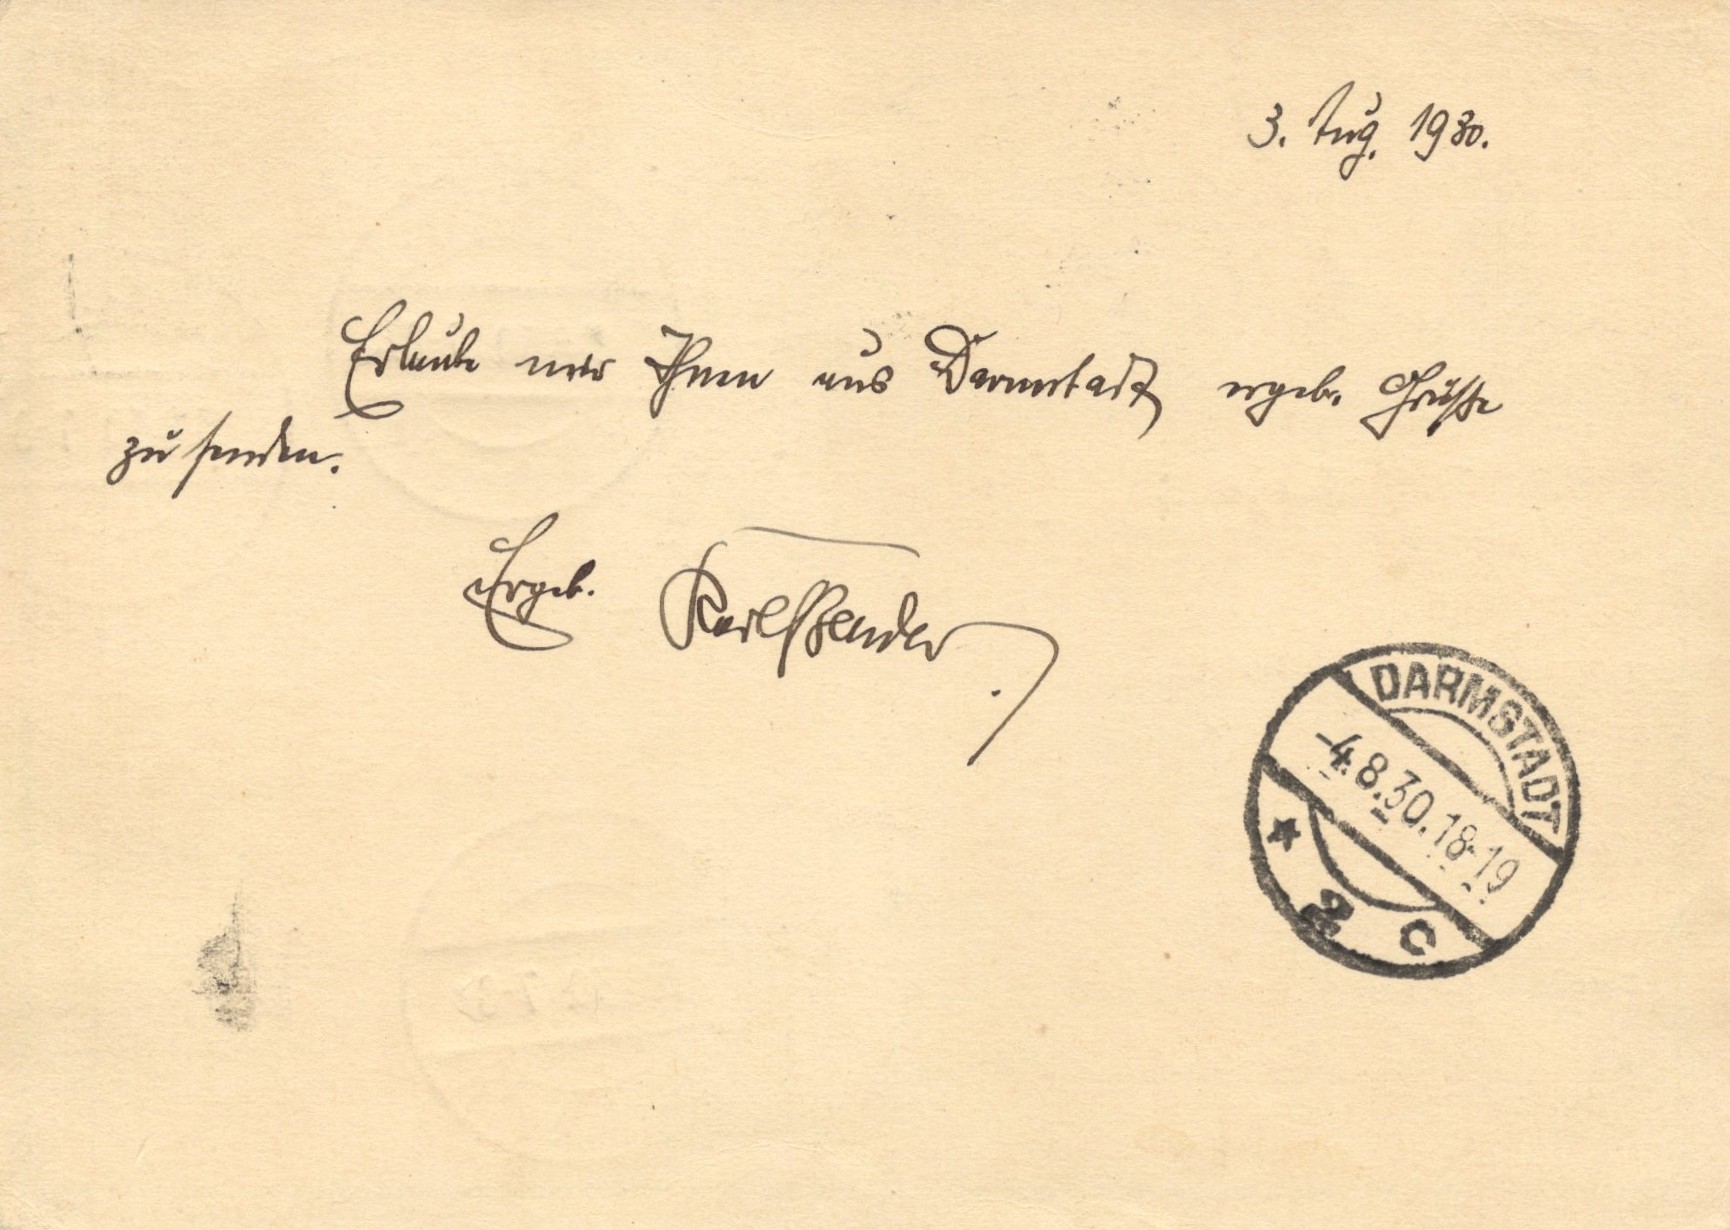 3. Aug. 1930.
Erlaube mir Ihnen aus Darmstadt ergeb. Grüße
zu senden.
Ergeb. Karl Bender.
DARMSTADT
-4.8.30.18-19
* 2 c